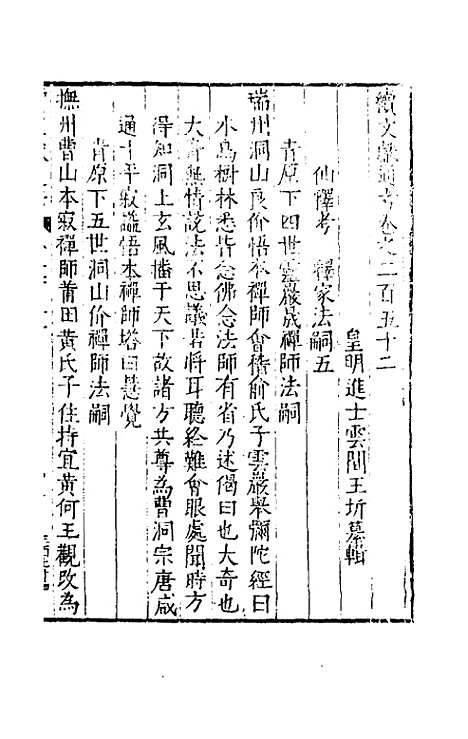 續文獻通考卷之二百五十二
皇明進士雲間王圻纂輯
仙釋考 釋家法嗣五
青原下四世雲巖晟禪師法嗣
瑞州洞山良价悟本禪師會稽俞氏子雲巖舉彌陀經曰
水鳥樹林悉皆念佛念法師有省乃述偈曰也大奇也
大奇無情說法不思議若將耳聽終難會眼處聞時方
得知洞上玄風播于天下故諸方共尊為曹洞宗唐咸
通十年寂謚悟本禪師塔曰慧覺
青原下五世洞山价禪師法嗣
撫州曹山本寂禪師莆田黃氏子住持宜黃何王觀改為